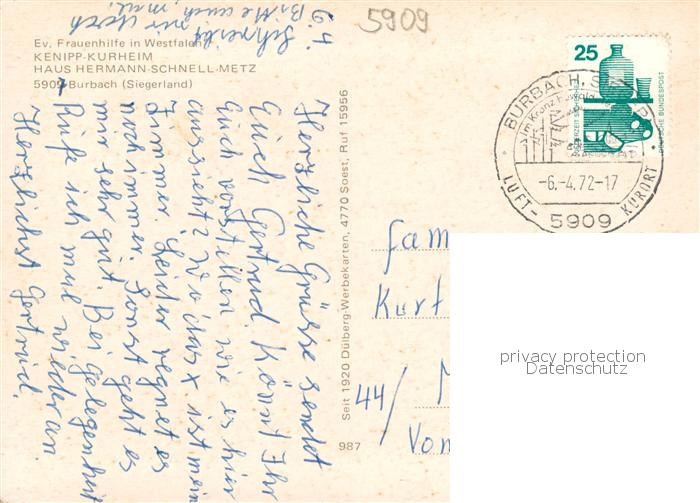 5909
6.4.
Schreibt mir doch
Bitte auch mal.
Ev. Frauenhilfe in Westfalen
KENIPP-KURHEIM
HAUS HERMANN-SCHNELL-METZ
5909 Burbach (Siegerland)
Herzliche Grüsse sendet
Euch Gertrud. Könnt Ihr
Euch vorstellen wie es hier
aussieht? Wo das x ist mein
Zimmer. Leider regnet es
noch immer. Sonst geht es
mir sehr gut. Bei Gelegenheit
Rufe ich mal wieder an.
Herzlichst Gertrud.
Seit 1920 Dülberg-Werbekarten, 4770 Soest, Ruf 15956
987
25
DEUTSCHE BUNDESPOST
BURBACH,
Im Kranz
-6.-4.72-17
LUFT- KURORT
5909
Fam
Kurt
44/
Von
privacy protection
Datenschutz